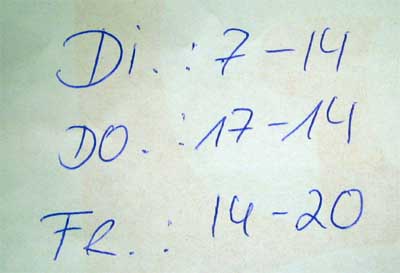 Di.: 7-14
DO.: 17-14
FR.: 14-20